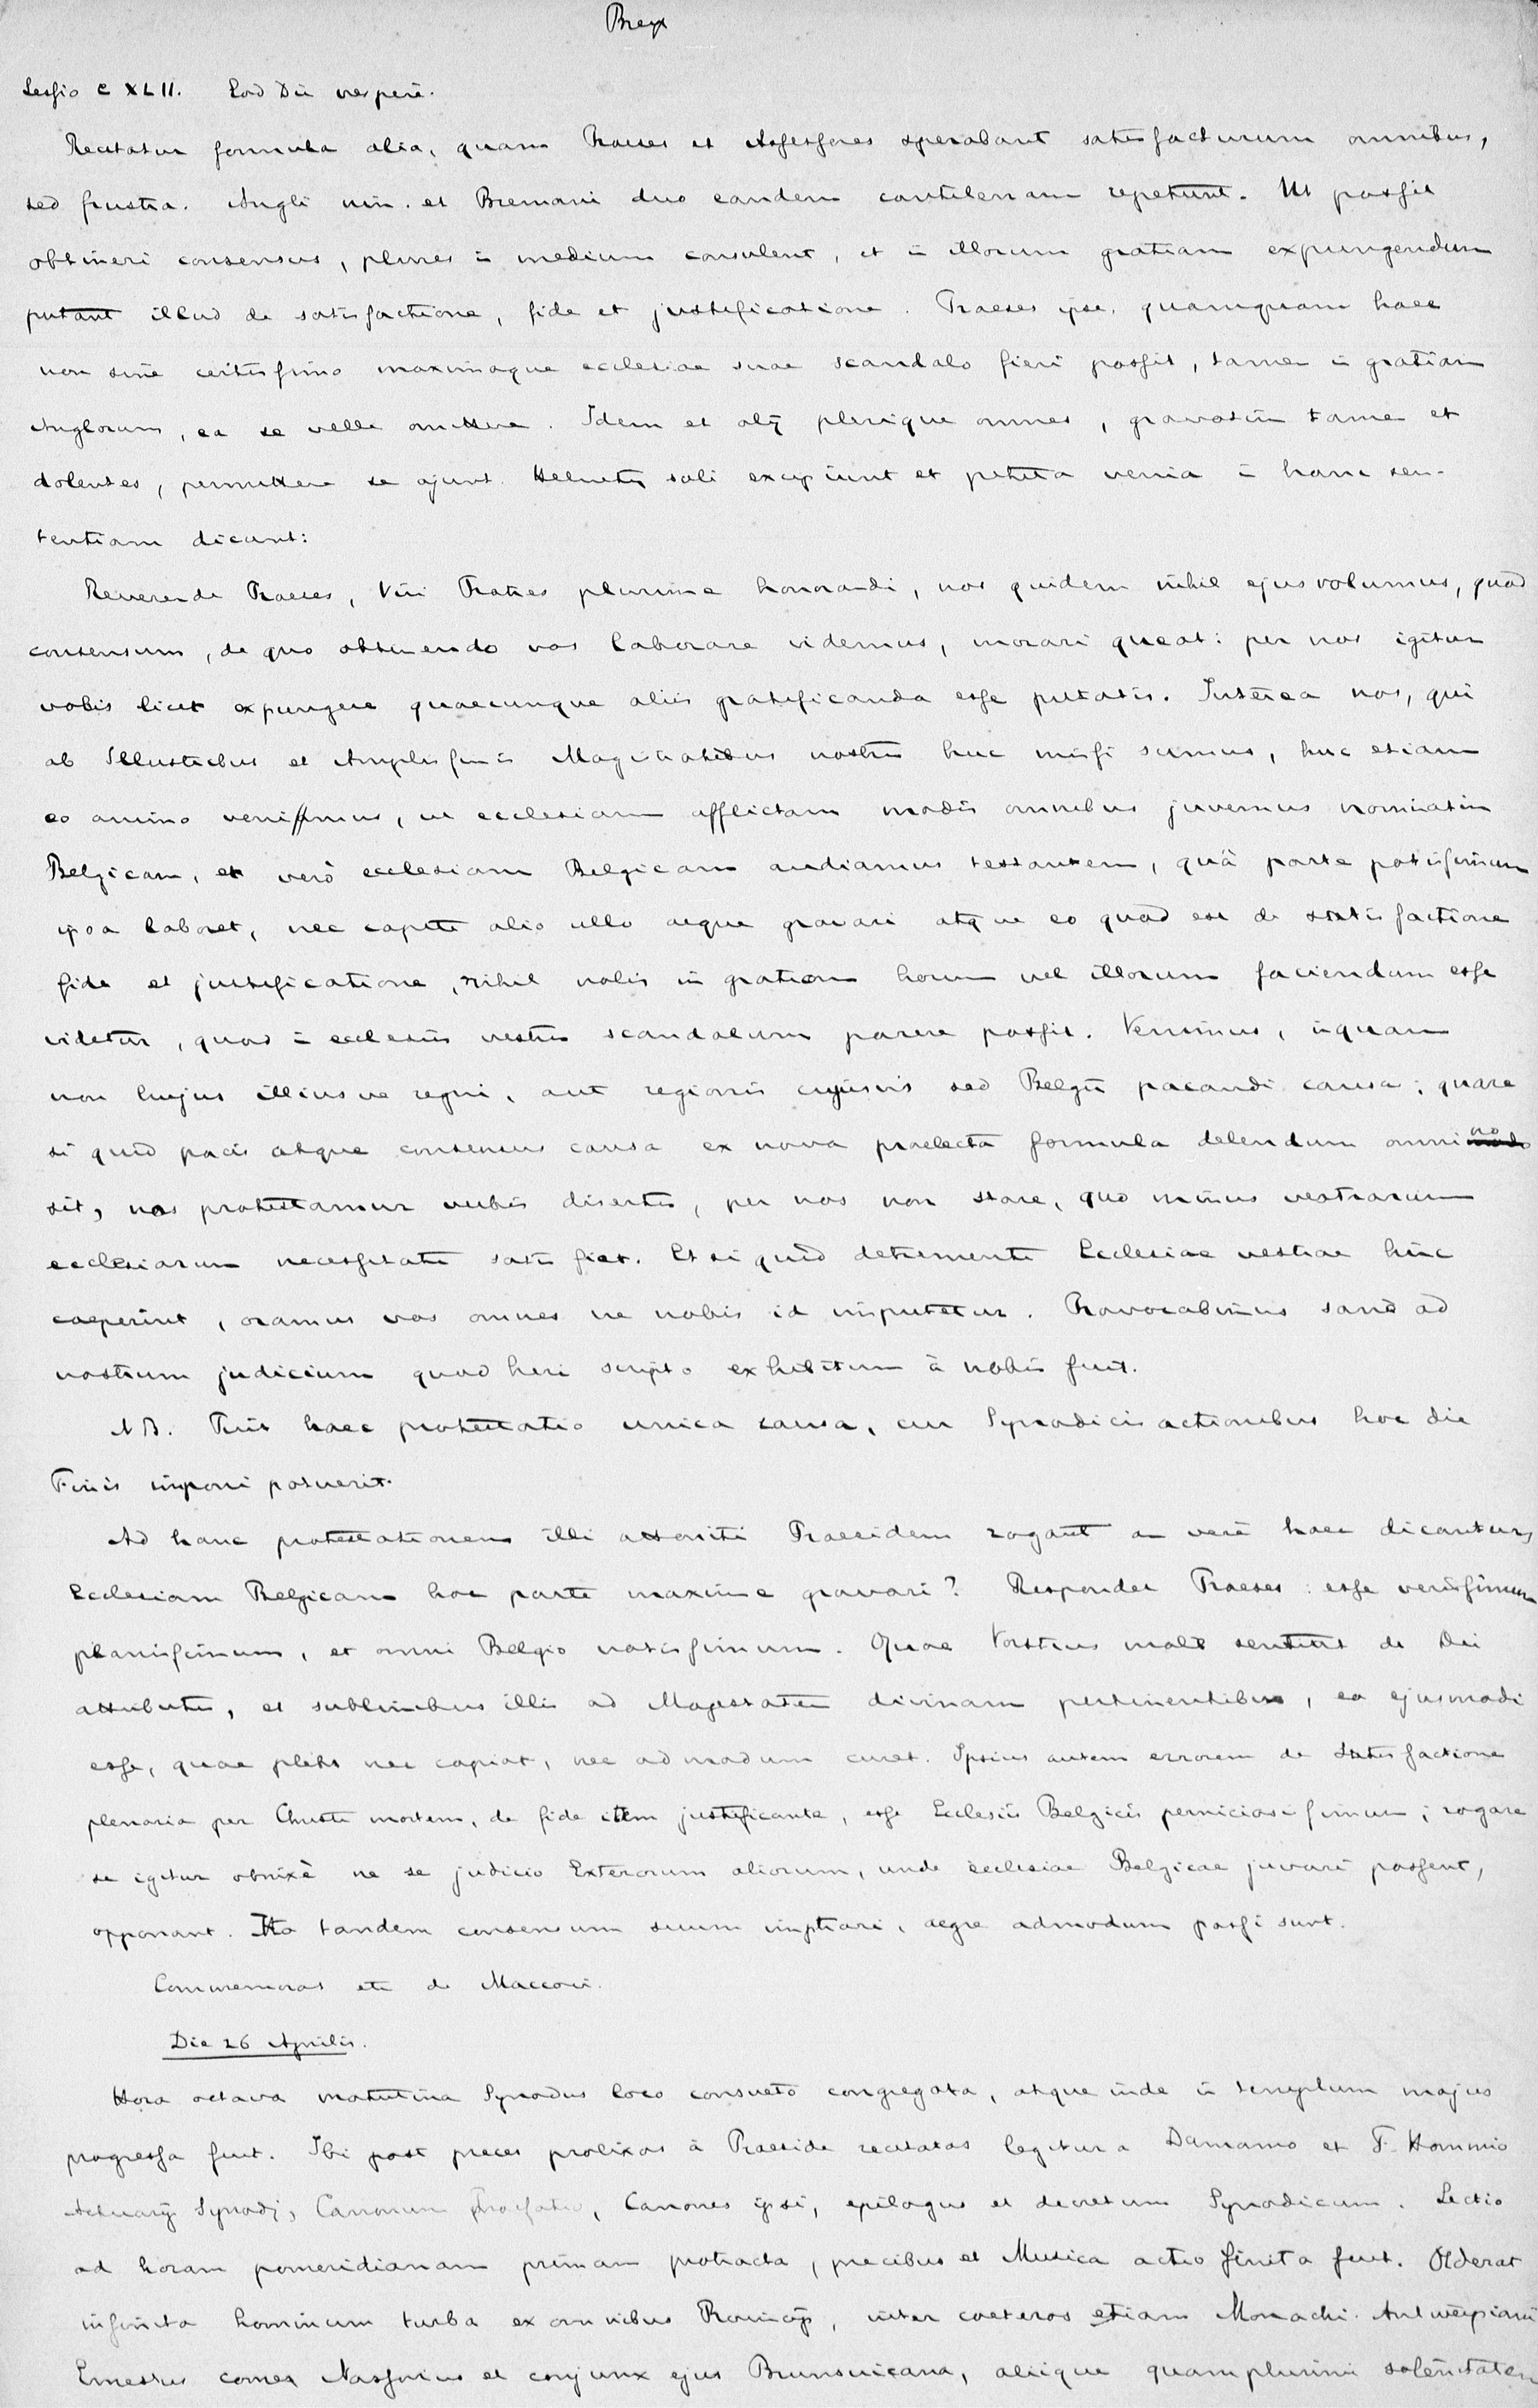 Brey
Sessio CXLII. Eod Die vesperi.
Recitatur formula alia, quam Praeses et Assessores sperabant satisfacturum omnibus,
sed frustra. Angli nim. et Bremani duo eandem cantilenam repetunt. Ut possit
obtineri consensus, plures in medium consulent, et in illorum gratiam expungendum
putant illud de satisfactione, fide et justificatione. Praeses ipse, quamquam haec
non sine certissimo maximoque ecclesiae suae scandalo fieri possit, tamen in gratiam
Anglorum, ea se velle omittere. Idem et alij plerique omnes, gravatim tamen et
dolentes, permittere se ajunt. Helvetij soli excipiunt et petita venia in hanc sen-
tentiam dicunt:
Reverende Praeses, Viri Fratres plurime honorandi, nos quidem nihil ejus volumus, quod
consensum, de quo obtinendo vos laborare videmus, morari queat: per nos igitur
vobis licet expungere quaecunque aliis gratificanda esse putatis. Interea nos, qui
ab Illustribus et Amplissimis Magistratibus nostris huc missi sumus, huc etiam
eo animo venissimus, ut ecclesiam afflictam modis omnibus juvemus nominatim
Belgicam, et verò ecclesiam Belgicam audiamus testantem, quâ parte potissimum
ipsa laboret, nec capite alio ullo aeque gravari atque eo quod est de satisfactione
fide et justificatione, nihil nobis in gratiam horum vel illorum faciendum esse
videtur, quod in ecclesiis vestris scandalum parere possit. Venimus, inquam
non hujus illiusve regni, aut regionis cujusvis sed Belgii pacandi causa; quare
si quid pacis atque consensus causa ex nova praelecta formula delendum omnino
sit, nos protestamur verbis disertis, per nos non stare, quo minus vestrarum
ecclesiarum necessitati satis fiat. Et si quid detrimenti Ecclesiae vestrae hinc
caeperint, oramus vos omnes ne nobis id imputetur. Provocabimus sanè ad
nostrum judicium quod heri scripto exhibitum à nobis fuit.
NB. Fuit haec protestatio unica causa, cur Synodicis actionibus hoc die
Finis imponi potuerit.
Ad hanc protestationem illi attoniti Praesidem rogant an verè haec dicantur,
Ecclesiam Belgicam hac parte maxime gravari? Respondet Praeses: esse verissimum
planissimum, et omni Belgio notissimum. Quae Vorstius malè sentiat de Dei
attributis, et sublimibus illis ad Majestatem divinam pertinentibus, ea ejusmodi
esse, quae plebs nec capiat, nec admodum curet. Ipsius autem errorem de Satisfactione
plenaria per Christi mortem, de fide item justificante, esse Ecclesiis Belgicis perniciosissimum; rogare
se igitur obnixè ne se judicio Exterorum aliorum, unde ecclesiae Belgicae juvari possent,
opponant. Ita tandem consensum suum impetrari, aegre admodum passi sunt.
Commemorat etc de Maccovi.
Die 26 Aprilis.
Hora octava matutina Synodus loco consueto congregata, atque inde in templum majus
progressa fuit. Ibi post preces prolixas à Praeside recitatas legitur a Damanno et F. Hommio
Actuarijs Synodj, Canonum Praefatio, Canones ipsi, epilogus et decretum Synodicum. Lectio
ad horam pomeridianam primam protracta, precibus et Musica actio finita fuit. Aderat
infinita hominum turba ex omnibus Provincijs, inter caeteros etiam Monachi Antwerpiani
Ernestus comes Nassovius et conjunx ejus Brunsvicana, aliique quamplurimi solemnitatem